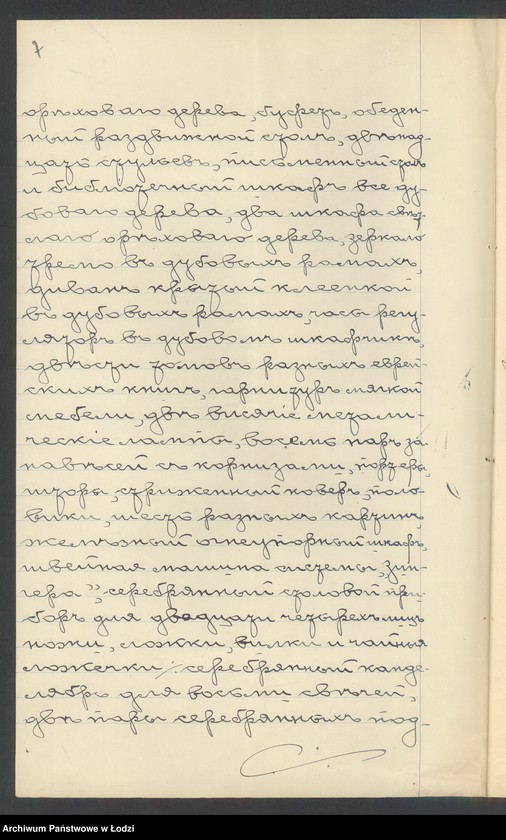 7
орѣховаго дерева, буфетъ, обеден-
ный раздвижной столъ, двѣнад-
цать стульевъ, письменный столъ
и библіотечный шкафъ все ду-
боваго дерева, два шкафа свѣт-
лаго орѣховаго дерева, зеркало
тремо въ дубовыхъ рамахъ,
диванъ крытый клеенкой
въ дубовыхъ рамахъ, часы регу-
ляторъ въ дубовомъ шкафчикѣ,
двѣсти томовъ разныхъ еврей-
скихъ книгъ, гарнитуръ мягкой
мебели, двѣ висячіе метали-
ческіе лампы, восемь паръ за-
навѣсей съ корнизами, портьеры,
шторы, стриженный коверъ, поло-
вики, шесть разныхъ картинъ,
желѣзный огнеупорный шкафъ,
швейная машина системы „Зин-
гера”, серебрянный столовой при-
боръ для двадцати четырехъ лицъ
ножи, ложки, вилки и чайныя
ложечки :/. серебрянный канде-
лябръ для восьми свѣчей,
двѣ пары серебрянныхъ под-
Archiwum Państwowe w Łodzi